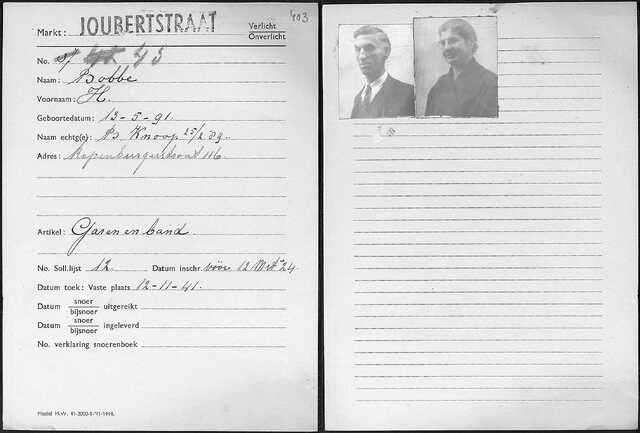 403
Markt: JOUBERTSTRAAT Verlicht
Onverlicht
No. 43
Naam: Bobbe
Voornaam: H.
Geboortedatum: 13-5-91
Naam echtg(e): B. Knoop 25/2 89.
Adres: Rapenburgerstraat 116.
Artikel: Garen en band.
No. Soll.lijst 12. Datum inschr vóór 12 Mrt 24
Datum toek: Vaste plaats 12-11-41.
Datum snoer
bijsnoer uitgereikt
Datum snoer
bijsnoer ingeleverd
No. verklaring snoerenboek
Model M.W. 41-3000-8/41-1498.